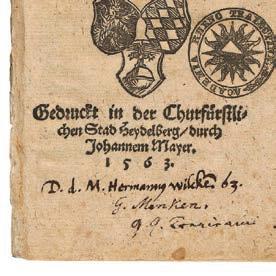 Gedruckt in der Churfürstli-
chen Stad Heydelberg/ durch
Johannem Mayer.
1563.
D. d. M. Hermannus Wilcken 63.
G. Menken.